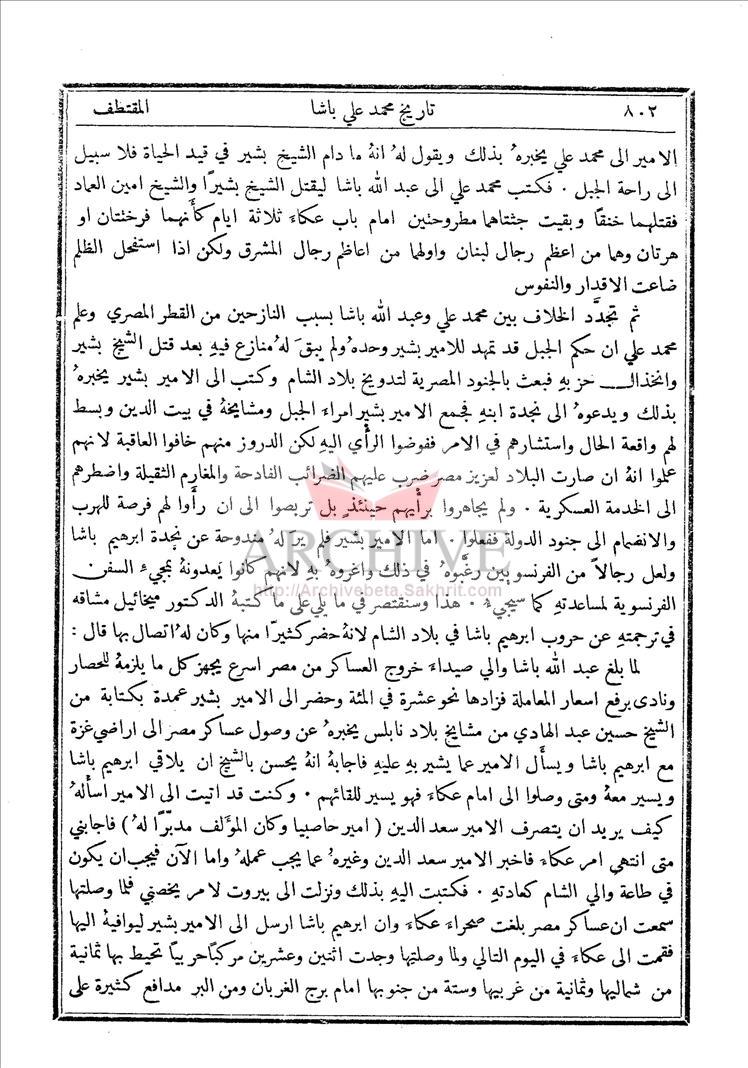 ٨٠٢ تاريخ محمد علي باشا المقتطف
الامير الى محمد علي يخبرهُ بذلك ويقول لهُ انهُ ما دام الشيخ بشير في قيد الحياة فلا سبيل
الى راحة الجبل . فكتب محمد علي الى عبد الله باشا ليقتل الشيخ بشيرًا والشيخ امين العماد
فقتلهما خنقًا وبقيت جثتاهما مطروحتين امام باب عكاء ثلاثة ايام كأنهما فرختتان او
هرتان وهما من اعظم رجال لبنان واولهما من اعاظم رجال المشرق ولكن اذا استفحل الظلم
ضاعت الاقدار والنفوس
ثم تجدَّد الخلاف بين محمد علي وعبد الله باشا بسبب النازحين من القطر المصري وعلم
محمد علي ان حكم الجبل قد تمهد للامير بشير وحده ولم يبقَ لهُ منازع فيهِ بعد قتل الشيخ بشير
وانخذال حزبهِ فبعث بالجنود المصرية لتدويخ بلاد الشام وكتب الى الامير بشير يخبرهُ
بذلك ويدعوهُ الى نجدة ابنهِ فجمع الامير بشير امراء الجبل ومشايخهُ في بيت الدين وبسط
لهم واقعة الحال واستشارهم في الامر ففوضوا الرأي اليهِ لكن الدروز منهم خافوا العاقبة لانهم
علموا انهُ ان صارت البلاد لعزيز مصر ضرب عليهم الضرائب الفادحة والمغارم الثقيلة واضطرهم
الى الخدمة العسكرية . ولم يجاهروا برأيهم حينئذٍ بل تربصوا الى ان رأوا لهم فرصة للهرب
والانضمام الى جنود الدولة ففعلوا . اما الامير بشير فلم يرَ لهُ مندوحة عن نجدة ابرهيم باشا
ولعل رجالاً من الفرنسويين رغَّبوهُ في ذلك واغروهُ بهِ لانهم كانوا يَعدونهُ بمجيء السفن
الفرنسوية لمساعدتهِ كما سيجيءُ . هذا وسنقتصر في ما يلي على ما كتبهُ الدكتور ميخائيل مشاقه
في ترجمتهِ عن حروب ابرهيم باشا في بلاد الشام لانهُ حضر كثيرًا منها وكان لهُ اتصال بها قال :
لما بلغ عبد الله باشا والي صيداء خروج العساكر من مصر اسرع يجهز كل ما يلزمهُ للحصار
ونادى برفع اسعار المعاملة فزادها نحو عشرة في المئة وحضر الى الامير بشير عمدة بكتابة من
الشيخ حسين عبد الهادي من مشايخ بلاد نابلس يخبرهُ عن وصول عساكر مصر الى اراضي غزة
مع ابرهيم باشا ويسأل الامير عما يشير بهِ عليهِ فاجابهُ انهُ يحسن بالشيخ ان يلاقي ابرهيم باشا
ويسير معهُ ومتى وصلوا الى امام عكاء فهو يسير للقائهم . وكنت قد اتيت الى الامير اسألهُ
كيف يريد ان يتصرف الامير سعد الدين ( امير حاصبيا وكان المؤلف مدبّرًا لهُ ) فاجابني
متى انتهى امر عكاء فاخبر الامير سعد الدين وغيرهُ عما يجب عملهُ واما الآن فيجب ان يكون
في طاعة والي الشام كعادتهِ . فكتبت اليهِ بذلك ونزلت الى بيروت لامر يخصني فلما وصلتها
سمعت ان عساكر مصر بلغت صحراء عكاء وان ابرهيم باشا ارسل الى الامير بشير ليوافيهُ اليها
فقمت الى عكاء في اليوم التالي ولما وصلتها وجدت اثنين وعشرين مركبًا حربيًا تحيط بها ثمانية
من شماليها وثمانية من غربيها وستة من جنوبها امام برج الغربان ومن البر مدافع كثيرة على
ARCHIVE
http://Archivebeta.Sakhrit.com